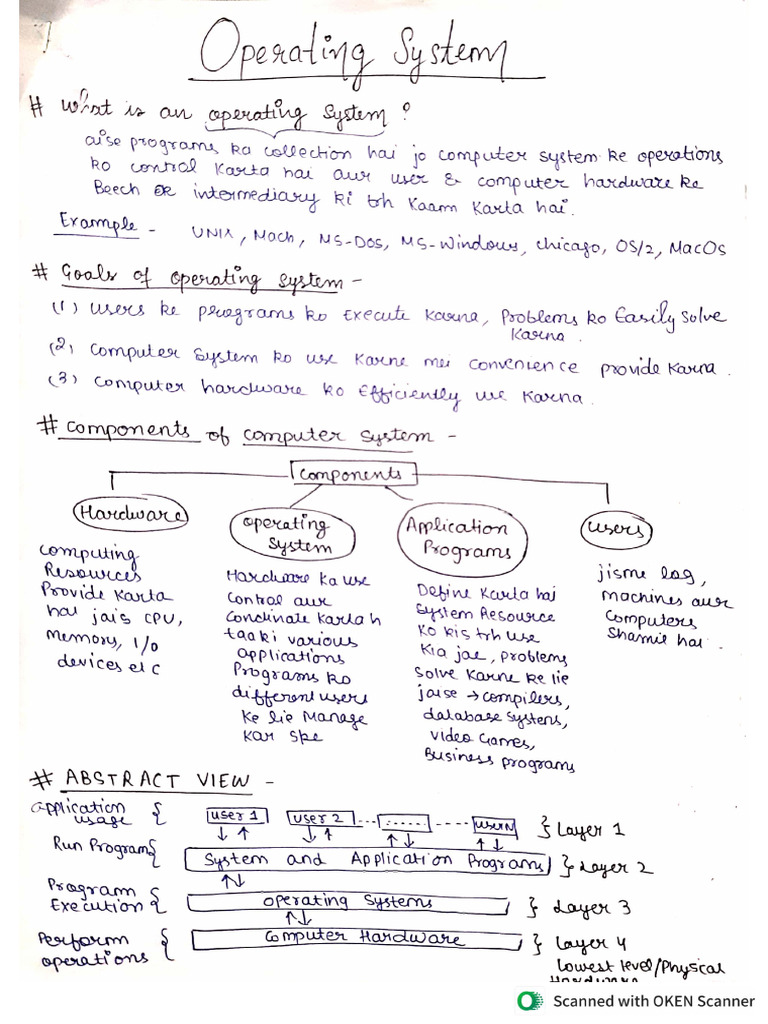 Operating System
# What is an operating system?
aise programs ka collection hai jo computer system ke operations
ko control karta hai aur user & computer hardware ke
Beech ek intermediary ki trh kaam karta hai.
Example - UNIX, Mach, MS-DOS, MS-Windows, Chicago, OS/2, MacOS
# Goals of operating System -
(1) users ke programs ko Execute karna, Problems ko Easily Solve
karna.
(2) Computer System ko use karne mei convenience provide karna.
(3) Computer hardware ko Efficiently use karna.
# Components of computer system -
Components
Hardware
Computing
Resources
Provide karta
hai jais CPU,
Memory, I/O
devices etc
Operating
System
Hardware ka use
Control aur
Condinate karta h
taaki various
applications
Programs ko
different users
ke lie Manage
kar ske
Application
Programs
Define karta hai
System Resource
ko kis trh use
kia jae, problems
Solve karne ke lie
jaise → compilers,
database systens,
Video Games,
Business programs
Users
jisme log,
machines aur
Computers
Shamil hai.
# ABSTRACT VIEW -
Application
usage { user 1 user 2 ... ...... ---- userN } Layer 1
Run Program { System and Application Programs } Layer 2
Program
Execution { Operating Systems } Layer 3
Perform
operations { Computer Hardware } Layer 4
Lowest level/Physical
Hardware
Scanned with OKEN Scanner